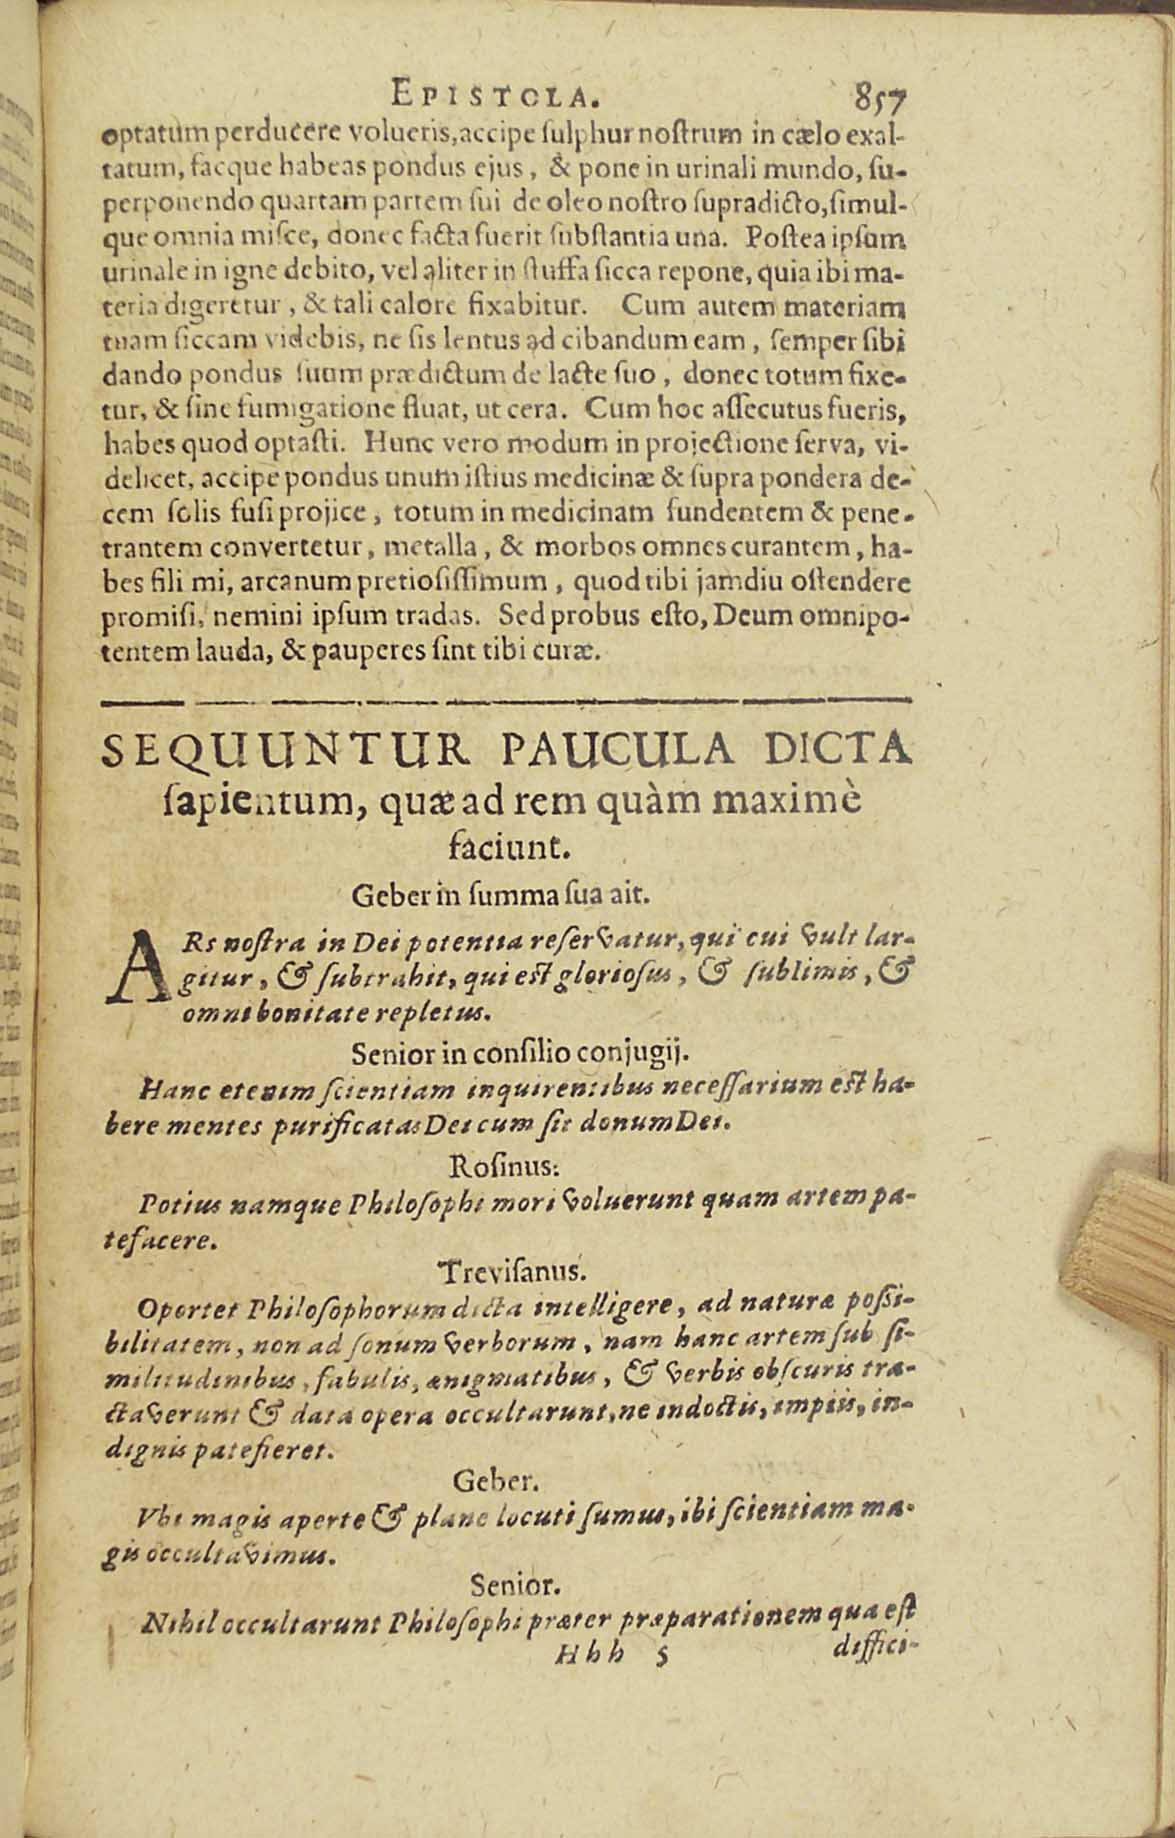 EPISTOLA. 857
optatum perducere volueris, accipe ſulphur noſtrum in cælo exal-
tatum, facque habeas pondus ejus, & pone in urinali mundo, ſu-
perponendo quartam partem ſui de oleo noſtro ſupradicto, ſimul-
que omnia miſce, donec facta fuerit ſubſtantia una. Poſtea ipſum
urinale in igne debito, vel aliter in ſtuffa ſicca repone, quia ibi ma-
teria digeretur, & tali calore fixabitur. Cum autem materiam
tuam ſiccam videbis, ne ſis lentus ad cibandum eam, ſemper ſibi
dando pondus ſuum prædictum de lacte ſuo, donec totum fixe-
tur, & ſine fumigatione fluat, ut cera. Cum hoc aſſecutus fueris,
habes quod optaſti. Hunc vero modum in projectione ſerva, vi-
delicet, accipe pondus unum iſtius medicinæ & ſupra pondera de-
cem ſolis fuſi projice, totum in medicinam fundentem & pene-
trantem convertetur, metalla, & morbos omnes curantem, ha-
bes fili mi, arcanum pretioſiſſimum, quod tibi jamdiu oſtendere
promiſi, nemini ipſum tradas. Sed probus eſto, Deum omnipo-
tentem lauda, & pauperes ſint tibi curæ.
SEQUUNTUR PAUCULA DICTA
ſapientum, quæ ad rem quàm maximè
faciunt.
Geber in ſumma ſua ait.
ARs noſtra in Dei potentia reſervatur, qui cui vult lar-
gitur, & ſubtrahit, qui eſt glorioſus, & ſublimis, &
omni bonitate repletus.
Senior in conſilio conjugij.
Hanc etenim ſcientiam inquirentibus neceſſarium eſt ha-
bere mentes purificatas Dei cum ſit donum Dei.
Roſinus:
Potius namque Philoſophi mori voluerunt quam artem pa-
tefacere.
Treviſanus.
Oportet Philoſophorum dicta intelligere, ad naturæ poſſi-
bilitatem, non ad ſonum verborum, nam hanc artem ſub ſi-
militudinibus, fabulis, ænigmatibus, & verbis obſcuris tra-
ctaverunt & data opera occultarunt, ne indoctis, impiis, in-
dignis patefieret.
Geber.
Vbi magis aperte & plane locuti ſumus, ibi ſcientiam ma-
gis occultavimus.
Senior.
Nihil occultarunt Philoſophi præter præparationem qua eſt
Hhh 5 diffici-